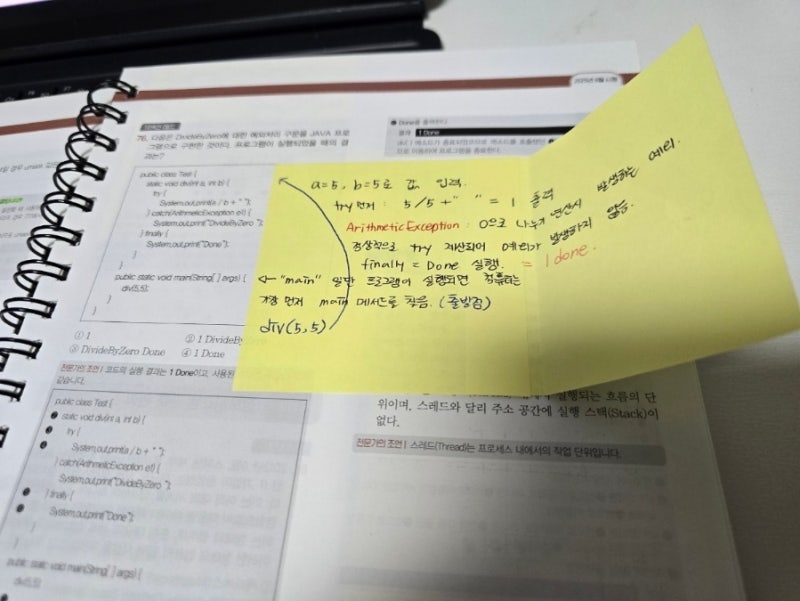 2025년 8월 시행
76. 다음은 DivideByZero에 대한 예외처리 구문을 JAVA 프로
그램으로 구현한 것이다. 프로그램이 실행되었을 때의 결
과는?
public class Test {
static void div(int a, int b) {
try {
System.out.print(a / b + " ");
} catch(ArithmeticException e1) {
System.out.print("DivideByZero ");
} finally {
System.out.print("Done");
}
}
public static void main(String[ ] args) {
div(5,5);
}
}
① 1
② 1 DivideBy
③ DivideByZero Done
④ 1 Done
전문가의 조언 | 코드의 실행 결과는 1 Done이고, 사용된
같습니다.
public class Test {
❷ static void div(int a, int b) {
try {
System.out.print(a / b + " ");
} catch(ArithmeticException e1) {
System.out.print("DivideByZero ");
} finally {
System.out.print("Done");
}
}
public static void main(String[ ] args) {
div(5,5)
Done을 출력한다.
결과 1 Done
으로 이동하여 프로그램을 종료한다.
a=5, b=5로 값 입력.
try 먼저 : 5/5+" " = 1 출력
ArithmeticException : 0으로 나누기 연산시 발생하는 예외.
정상적으로 try 계산되어 예외가 발생하지 않음.
finally = Done 실행. = 1 done.
← "main" 일단 프로그램이 실행되면 컴퓨터는
가장 먼저 main 메서드를 찾음. (출발점)
div(5,5)
실행되는 흐름의 단
위이며, 스레드와 달리 주소 공간에 실행 스택(Stack)이
없다.
전문가의 조언 | 스레드(Thread)는 프로세스 내에서의 작업 단위입니다.